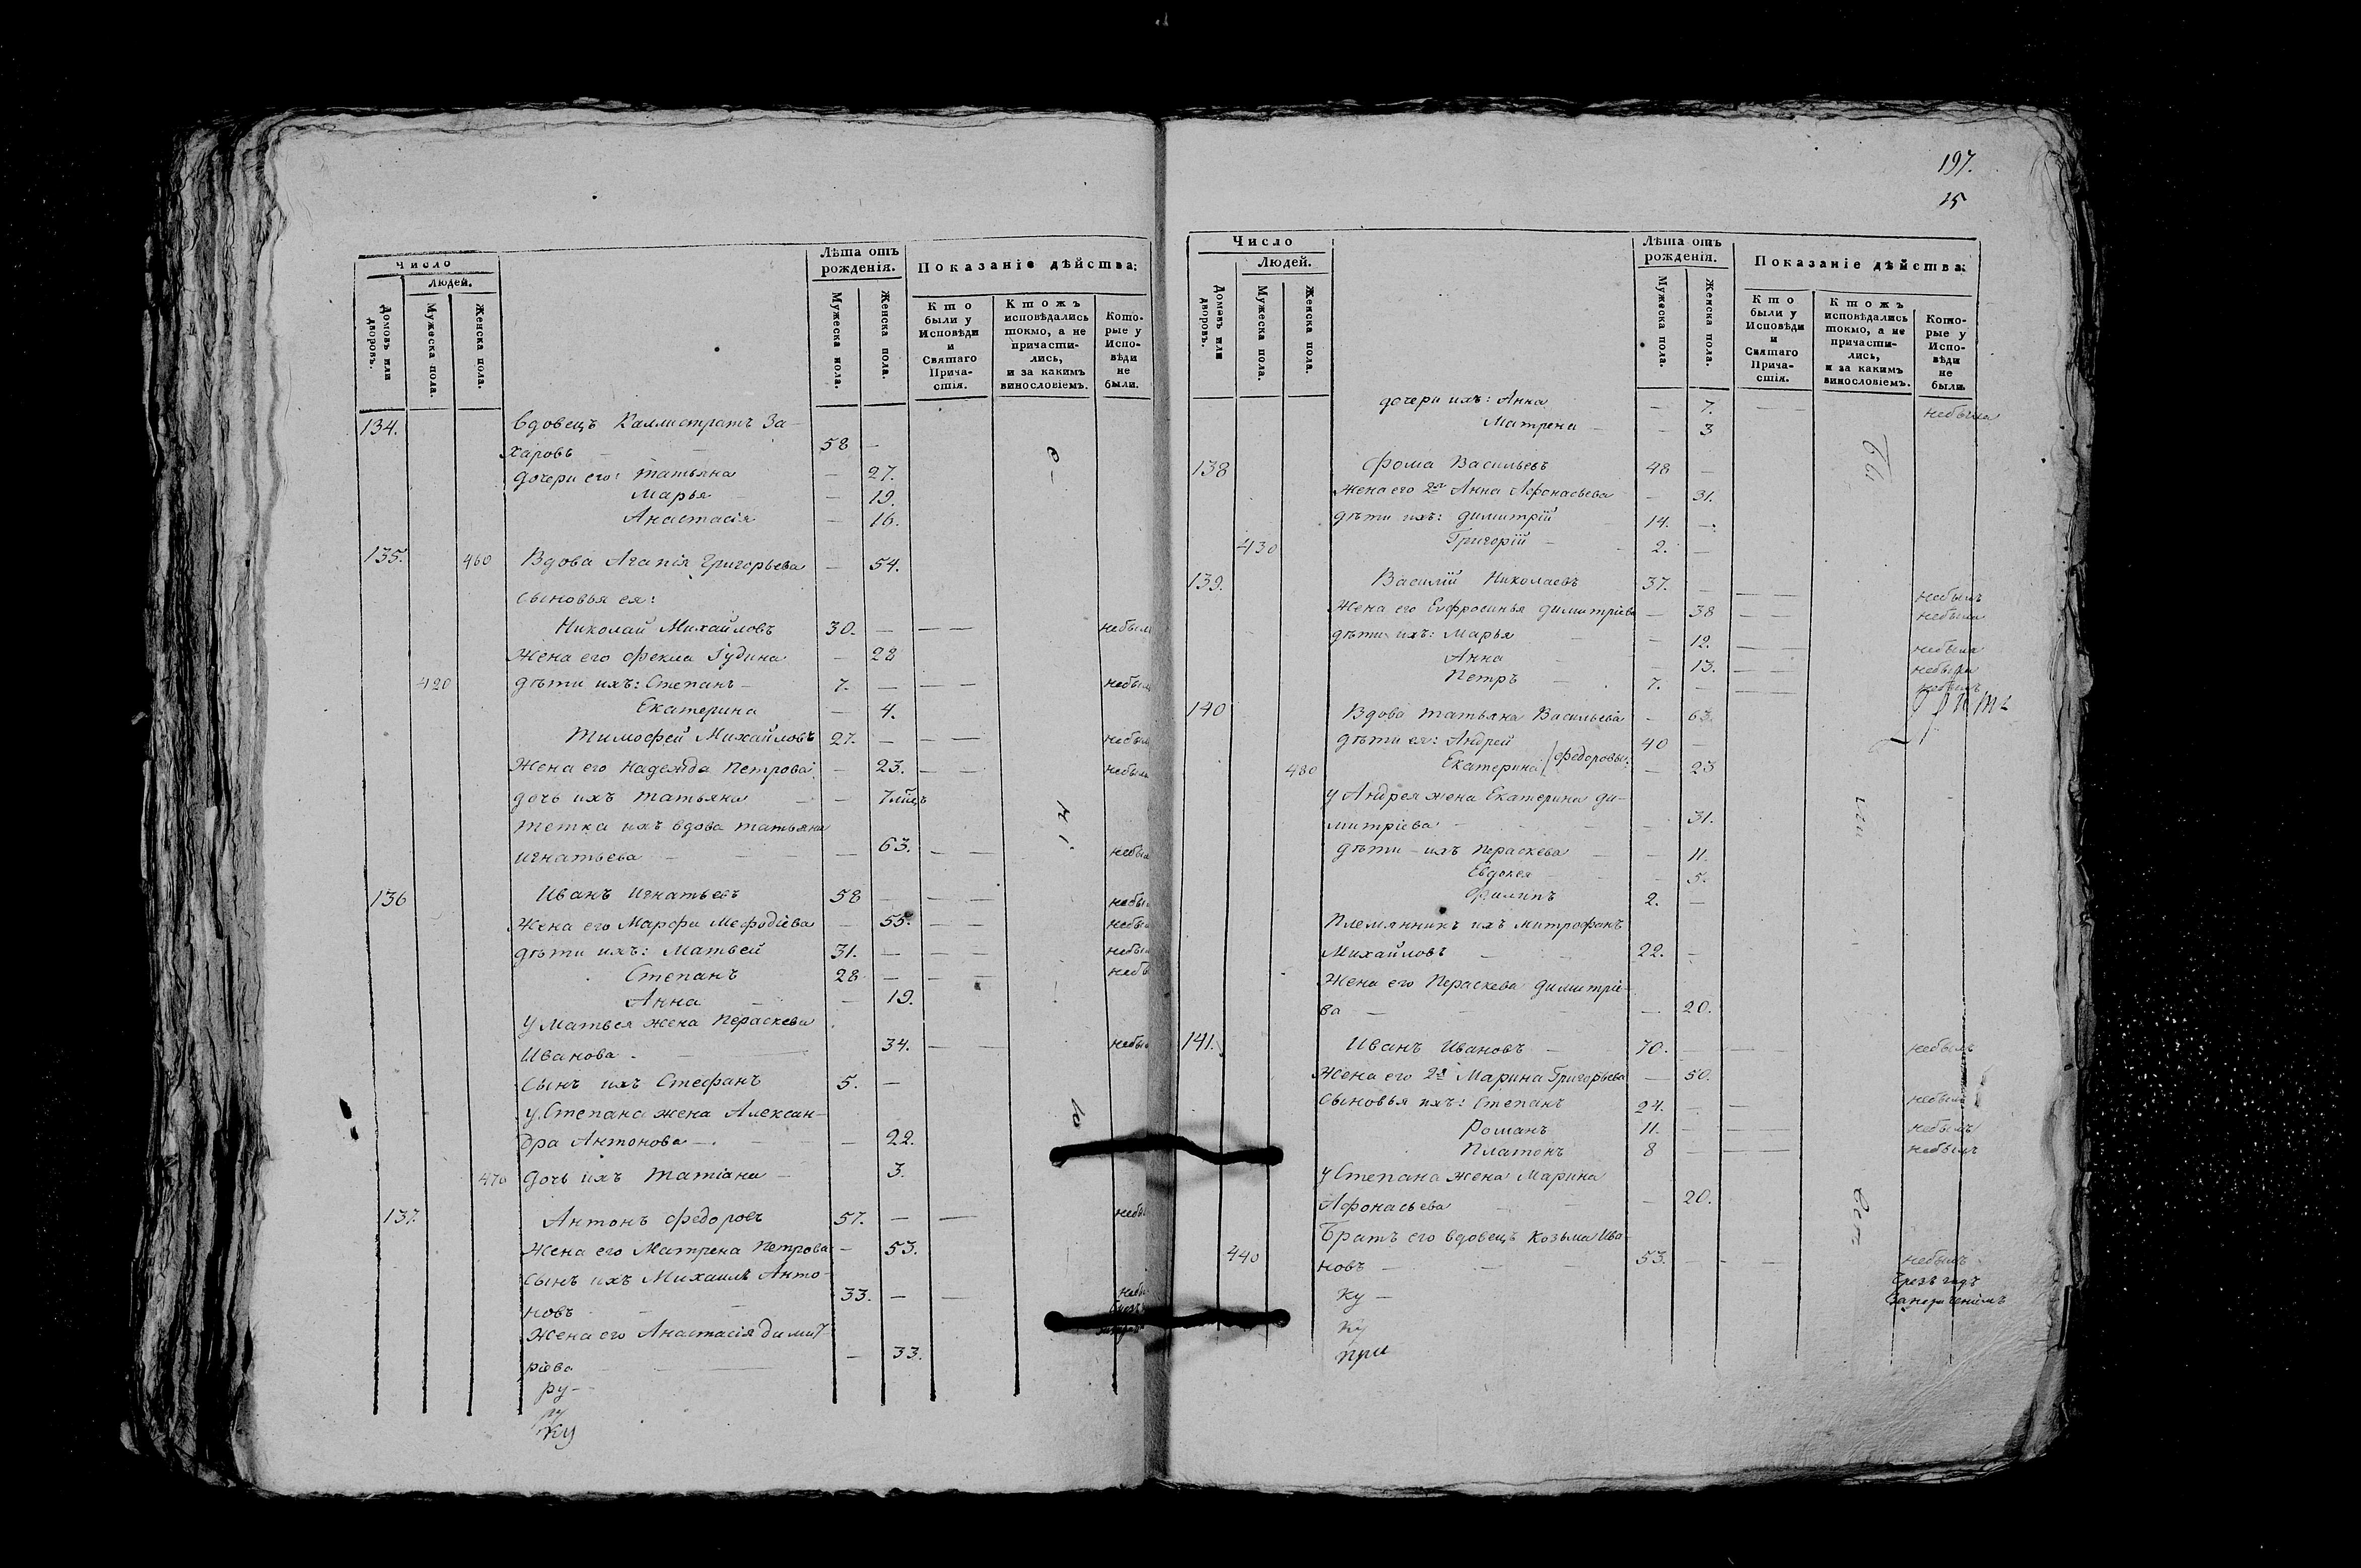 Число
Людей.
Домовъ или дворовъ.
Мужеска пола.
Женска пола.
Лѣта отъ рожденія.
Мужеска пола.
Женска пола.
Показаніе дѣйства:
Кто были у Исповѣди и Святаго Причастія.
Ктожъ исповѣдались токмо, а не причастились, и за какимъ винословіемъ.
Которые у Исповѣди не были.
134. вдовецъ Каллистратъ За-
харовъ — 58 —
дочери его: татьяна — 27.
Марья — 19.
Анастасія — 16.
135. 460 Вдова Агапія Григорьева — 54.
сыновья ея:
Николай Михайловъ 30. — — —
Жена его Фекла Іудина — 28
420 дѣти ихъ: Степанъ — 7. — — —
Екатерина — 4.
Тимофей Михайловъ 27. — — —
Жена его Надежда Петрова — 23. — —
дочь ихъ татьяна — —
тетка ихъ вдова татьяна
игнатьева — — 63. — —
136 Иванъ Игнатьевъ 58 — — —
Жена его Марфа Мефодіева — 55. — —
дѣти ихъ: Матвей 31. — — —
Степанъ 28 — — —
Анна — 19.
у Матвея жена Пераскева
Иванова — 34. — —
сынъ ихъ Стефанъ 5. —
у Степана жена Алексан-
дра Антонова — — 22.
470 дочь ихъ татіана — 3.
137. Антонъ Федоровъ 57. — —
Жена его Матрена Петрова — 53.
сынъ ихъ Михаилъ Анто-
новъ 33. — —
Жена его Анастасія димит-
ріева — 33.
ру-
ку
197.
15
Число
Людей.
Домовъ или дворовъ.
Мужеска пола.
Женска пола.
Лѣта отъ рожденія.
Мужеска пола.
Женска пола.
Показаніе дѣйства:
Кто были у Исповѣди и Святаго Причастія.
Ктожъ исповѣдались токмо, а не причастились, и за какимъ винословіемъ.
Которые у Исповѣди не были.
дочери ихъ: Анна — 7. — — небыла
Матрена — — 3
138 Фома Васильевъ 48 —
жена его 2я Анна Афонасьева — 31.
дѣти ихъ: димитрій 14. —
430 Григорій — 2. —
139. Василій Николаевъ 37. — — — небылъ
Жена его Евфросинья димитріева — 38 — — небыла
дѣти ихъ: Марья — 12. — — небыла
Анна — 13. — — небыла
Петръ 7. — — небылъ
140 Вдова татьяна Васильева — 63.
дѣти ея: Андрей 40 —
480 Екатерина Федоровы — 23
у Андрея жена Екатерина ди-
митріева — — 31.
дѣти ихъ Пераскева — 11.
Евдокея — 5.
Филипъ 2. —
Племянникъ ихъ митрофанъ
Михайловъ — 22. —
Жена его Пераскева димитріе-
ва — — 20.
141. Иванъ Ивановъ — 70. — — — небылъ
Жена его 2я Марина Григорьева — 50.
сыновья ихъ: Степанъ 24. — — небылъ
Романъ 11. — — небылъ
Платонъ 8 — — — небылъ
у Степана жена Марина
Афонасьева — 20.
Братъ его вдовецъ Козьма Ива-
440 новъ — 53. — — — небылъ
ку —
ку
при